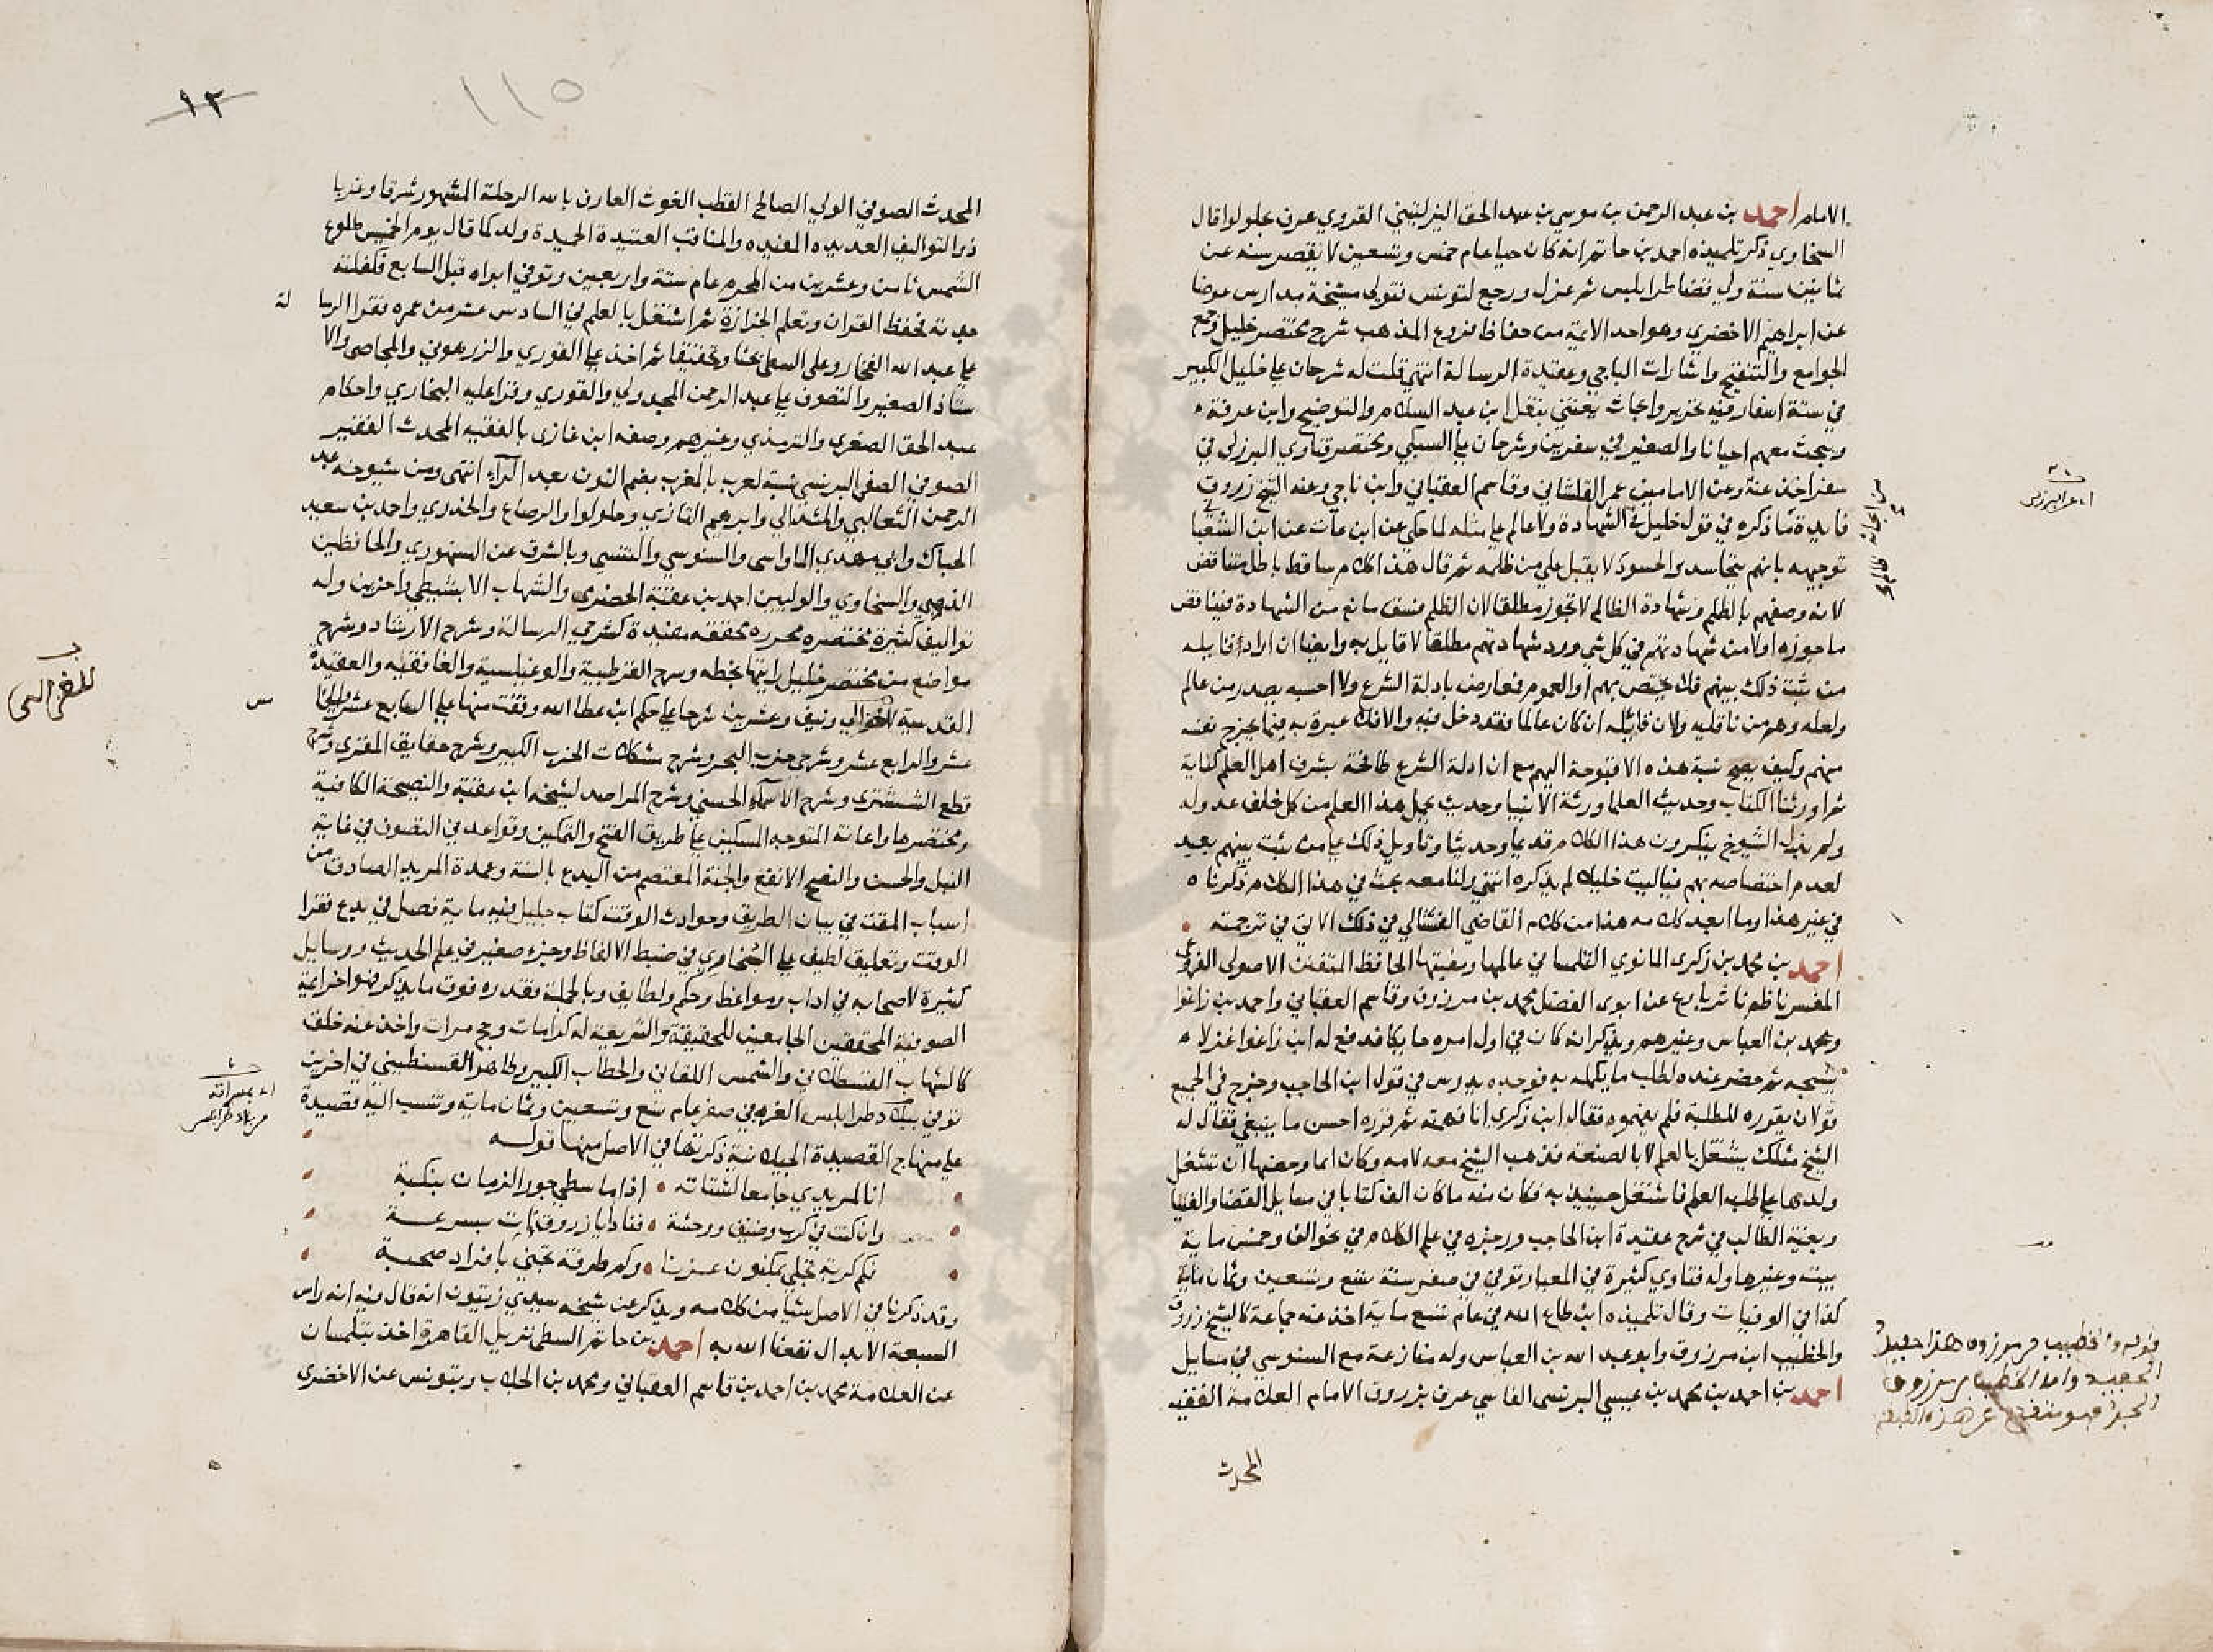 الامام احمد بن عبد الرحمن بن موسي بن عبد الحق اليزليتيني القروي عرف بحلولوا قال
السخاوي ذكر تلميذه احمد بن حاتم انه كان حيا عام خمس وتسعين لا يقصر سنه عن
ثمانين سنة ولي قضا طرابلس ثم عزل ورجع لتونس فتولي مشيخة مدارس عوضا
عن ابراهيم الاخضري وهو احد الايمة من حفاظ فروع المذهب شرح مختصر خليل وجمع
الجوامع والتنقيح واشارات الباجي وعقيدة الرسالة انتهي قلت له شرحان علي خليل الكبير
في ستة اسفار فيه تحرير وابحاث يعتني بنقل ابن عبد السلام والتوضيح وابن عرفة
ويبحث معهم احيانا والصغير في سفرين وشرحان علي السبكي ومختصر فتاوي البرزلي في
سفر اخذ عنه وعن الامامين عمر القلشاني وقاسم العقباني وابن ناجي وعنه الشيخ زروق
فايدة ما ذكره في قول خليل في الشهادة ولا عالم علي مثله لما حكي عن ابن مات عن ابن الشعبا
توجيهه بانهم يتحاسدوا والحسود لا يقبل علي من ظلمه ثم قال هذا الكلام ساقط باطل متناقض
لانه وصفهم بالظلم وشهادة الظالم لا تجوز مطلقا لان الظلم فسق مانع من الشهادة فيناقض
ما جوزه اولا من شهادتهم في كل شي ورد شهادتهم مطلقا لا قايل به وايضا ان اراد قايله
من ثبت ذلك بينهم فلا يختص بهم او العموم فمعارض بادلة الشرع ولا احسبه يصدر من عالم
ولعله وهم من ناقليه ولان قايله ان كان عالما فقد دخل فيه والا فلا عبرة به فيما يجرح نفسه
منهم وكيف يصح نسبة هذه الاقبوحة اليهم مع ان ادلة الشرع طافحة بشرف اهل العلم كناية
ثم اورثنا الكتاب وحديث العلما ورثة الانبيا وحديث يحمل هذا العلم من كل خلف عدوله
ولم يزل الشيوخ ينكرون هذا الكلام قديما وحديثا وتاويل ذلك علي من ثبت بينهم بعيد
لعدم اختصاصه بهم فياليت خليلا لم يذكره انتهي ولنا معه بحث في هذا الكلام ذكرناه
في غير هذا وما ابعد كلامه هذا من كلام القاضي الفشتالي في ذلك الاتي في ترجمته
احمد بن محمد بن زكري المانوي التلمساني عالمها ومفتيها الحافظ المتفنن الاصولي الفروعي
المفسر ناظم ناثر بارع عن ابوي الفضل محمد بن مرزوق وقاسم العقباني واحمد بن زاغوا
ومحمد بن العباس وغيرهم ويذكر انه كان في اول امره حايكا فدفع له ابن زاغوا غزلا
ينسجه ثم حضر عنده لطلب ما يكمله به فوجده يدرس في قول ابن الحاجب وخرج في الجميع
قولان يقوره للطلبة فلم يفهموه فقال ابن زكري انا فهمته ثم قرره احسن ما ينبغي فقال له
الشيخ مثلك يشتغل بالعلم لا بالصنعة فذهب الشيخ معه لامه وكان ايما وحضها ان تشغل
ولدها علي طلب العلم فاشتغل حينيذ به فكان منه ما كان الف كتابا في مسايل القضا والفتيا
وبغية الطالب في شرح عقيدة ابن الحاجب ورجزه في علم الكلام في نحو الف وخمس ماية
بيت وغيرها وله فتاوي كثيرة في المعيار توفي في صفر سنة تسع وتسعين وثمان ماية
كذا في الوفيات وقال تلميذه ابن طاع الله في عام تسع ماية اخذ عنه جماعة كالشيخ زروق
والخطيب ابن مرزوق وابو عبد الله بن العباس وله منازعة مع السنوسي في مسايل
احمد بن احمد بن محمد بن عيسي البرنسي الفاسي عرف بزروق الامام العلامة الفقيه
المحدث
قوله والخطيب بن مرزوق هذا حفيد
الحفيد واما الخطيب بن مرزوق
الجد فهو متقدم عن هذه الطبقة
١١٥
١٢
المحدث الصوفي الولي الصالح القطب الغوث العارف بالله الرحلة المشهور شرقا وغربا
ذو التواليف العديده المفيده والمناقب العتيدة الحميدة ولد كما قال يوم الخميس طلوع
الشمس ثامن وعشرين من المحرم عام ستة واربعين وتوفي ابواه قبل السابع فكفلته
جدته فحفظ القران وتعلم الخرازة ثم اشتغل بالعلم في السادس عشر من عمره فقرا الرسا لة
علي عبد الله الفخار وعلي السطي بحثا وتحقيقا ثم اخذ علي القوري والزرهوني والمجاصي والا
ستاذ الصغير والتصوف علي عبد الرحمن المجدولي والقوري وقرا عليه البخاري واحكام
عبد الحق الصغري والترمذي وغيرهم وصفه ابن غازي بالفقيه المحدث الفقير
الصوفي الصفي البرنسي نسبة لعرب بالمغرب بضم النون بعد الراء انتهي ومن شيوخه عبد
الرحمن الثعالبي والمشدالي وابرهيم التازي وحلولوا والرصاع والخدري واحمد بن سعيد
الحباك وابي مهدي الماواسي والسنوسي والتنسي وبالشرق عن السنهوري والحافظين
الديمي والسخاوي والوليين احمد بن عقبة الحضرمي والشهاب الابشيطي واخرين وله
تواليف كثيرة مختصره محرره محققه مفيدة كشرحي الرسالة وشرح الارشاد وشرح
مواضع من مختصر خليل رايتها بخطه وشرح القرطبية والوغليسية والغافقيه والعقيدة
القدسية للغزالي ونيف وعشرين شرحا علي حكم ابن عطا الله وقفت منها علي السابع عشر والخا مس
عشر والرابع عشر وشرحي حزب البحر وشرح مشكلات الحزب الكبير وشرح حقايق المقري وشرح
قطع الششتري وشرح الاسماء الحسني وشرح المراصد لشيخه ابن عقبة والنصيحة الكافية
ومختصرها واعانة المتوجه المسكين علي طريق الفتح والتمكين وقواعد في التصوف في غاية
النبل والحسن والنصح الانفع والجنة المعتصم من البدع بالسنة وعمدة المريد الصادق من
اسباب المقت في بيان الطريق وحوادث الوقت كتاب جليل فيه ماية فصل في بدع فقرا
الوقت وتعليق لطيف علي البخاري في ضبط الالفاظ وجزء صغير في علم الحديث ورسايل
كثيرة لاصحابه في اداب ومواعظ وحكم ولطايف وبالجملة فقدره فوق ما يذكر فهو اخر ايمة
الصوفية المحققين الجامعين للحقيقة والشريعة له كرامات وحج مرات واخذ عنه خلق
كالشهاب القسطلاني والشمس اللقاني والحطاب الكبير وطاهر القسنطيني في اخرين
توفي ببلاد طرابلس الغرب في صفر عام تسع وتسعين وثمان ماية وتنسب اليه قصيدة
علي منهاج القصيدة الجيلانية ذكرتها في الاصل منها قوله
انا لمريدي جامع لشتاته • اذا ما سطي جور الزمان بنكبة
وان كنت في كرب وضيق ووحشة • فناد ايا زروق ات بسرعة
فكم كربة تجلي بمكنون عزنا • وكم طرفة تجني بافراد صحبة
وقد ذكرنا في الاصل شيا من كلامه ويذكر عن شيخه سيدي زيتون انه قال فيه انه راس
السبعة الابدال نفعنا الله به احمد بن حاتم السطي نزيل القاهرة اخذ بتلمسان
عن العلامة محمد بن احمد بن قاسم العقباني ومحمد بن الجلاب وبتونس عن الاخضري